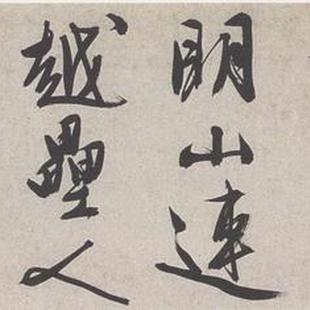 明山連
越壘人